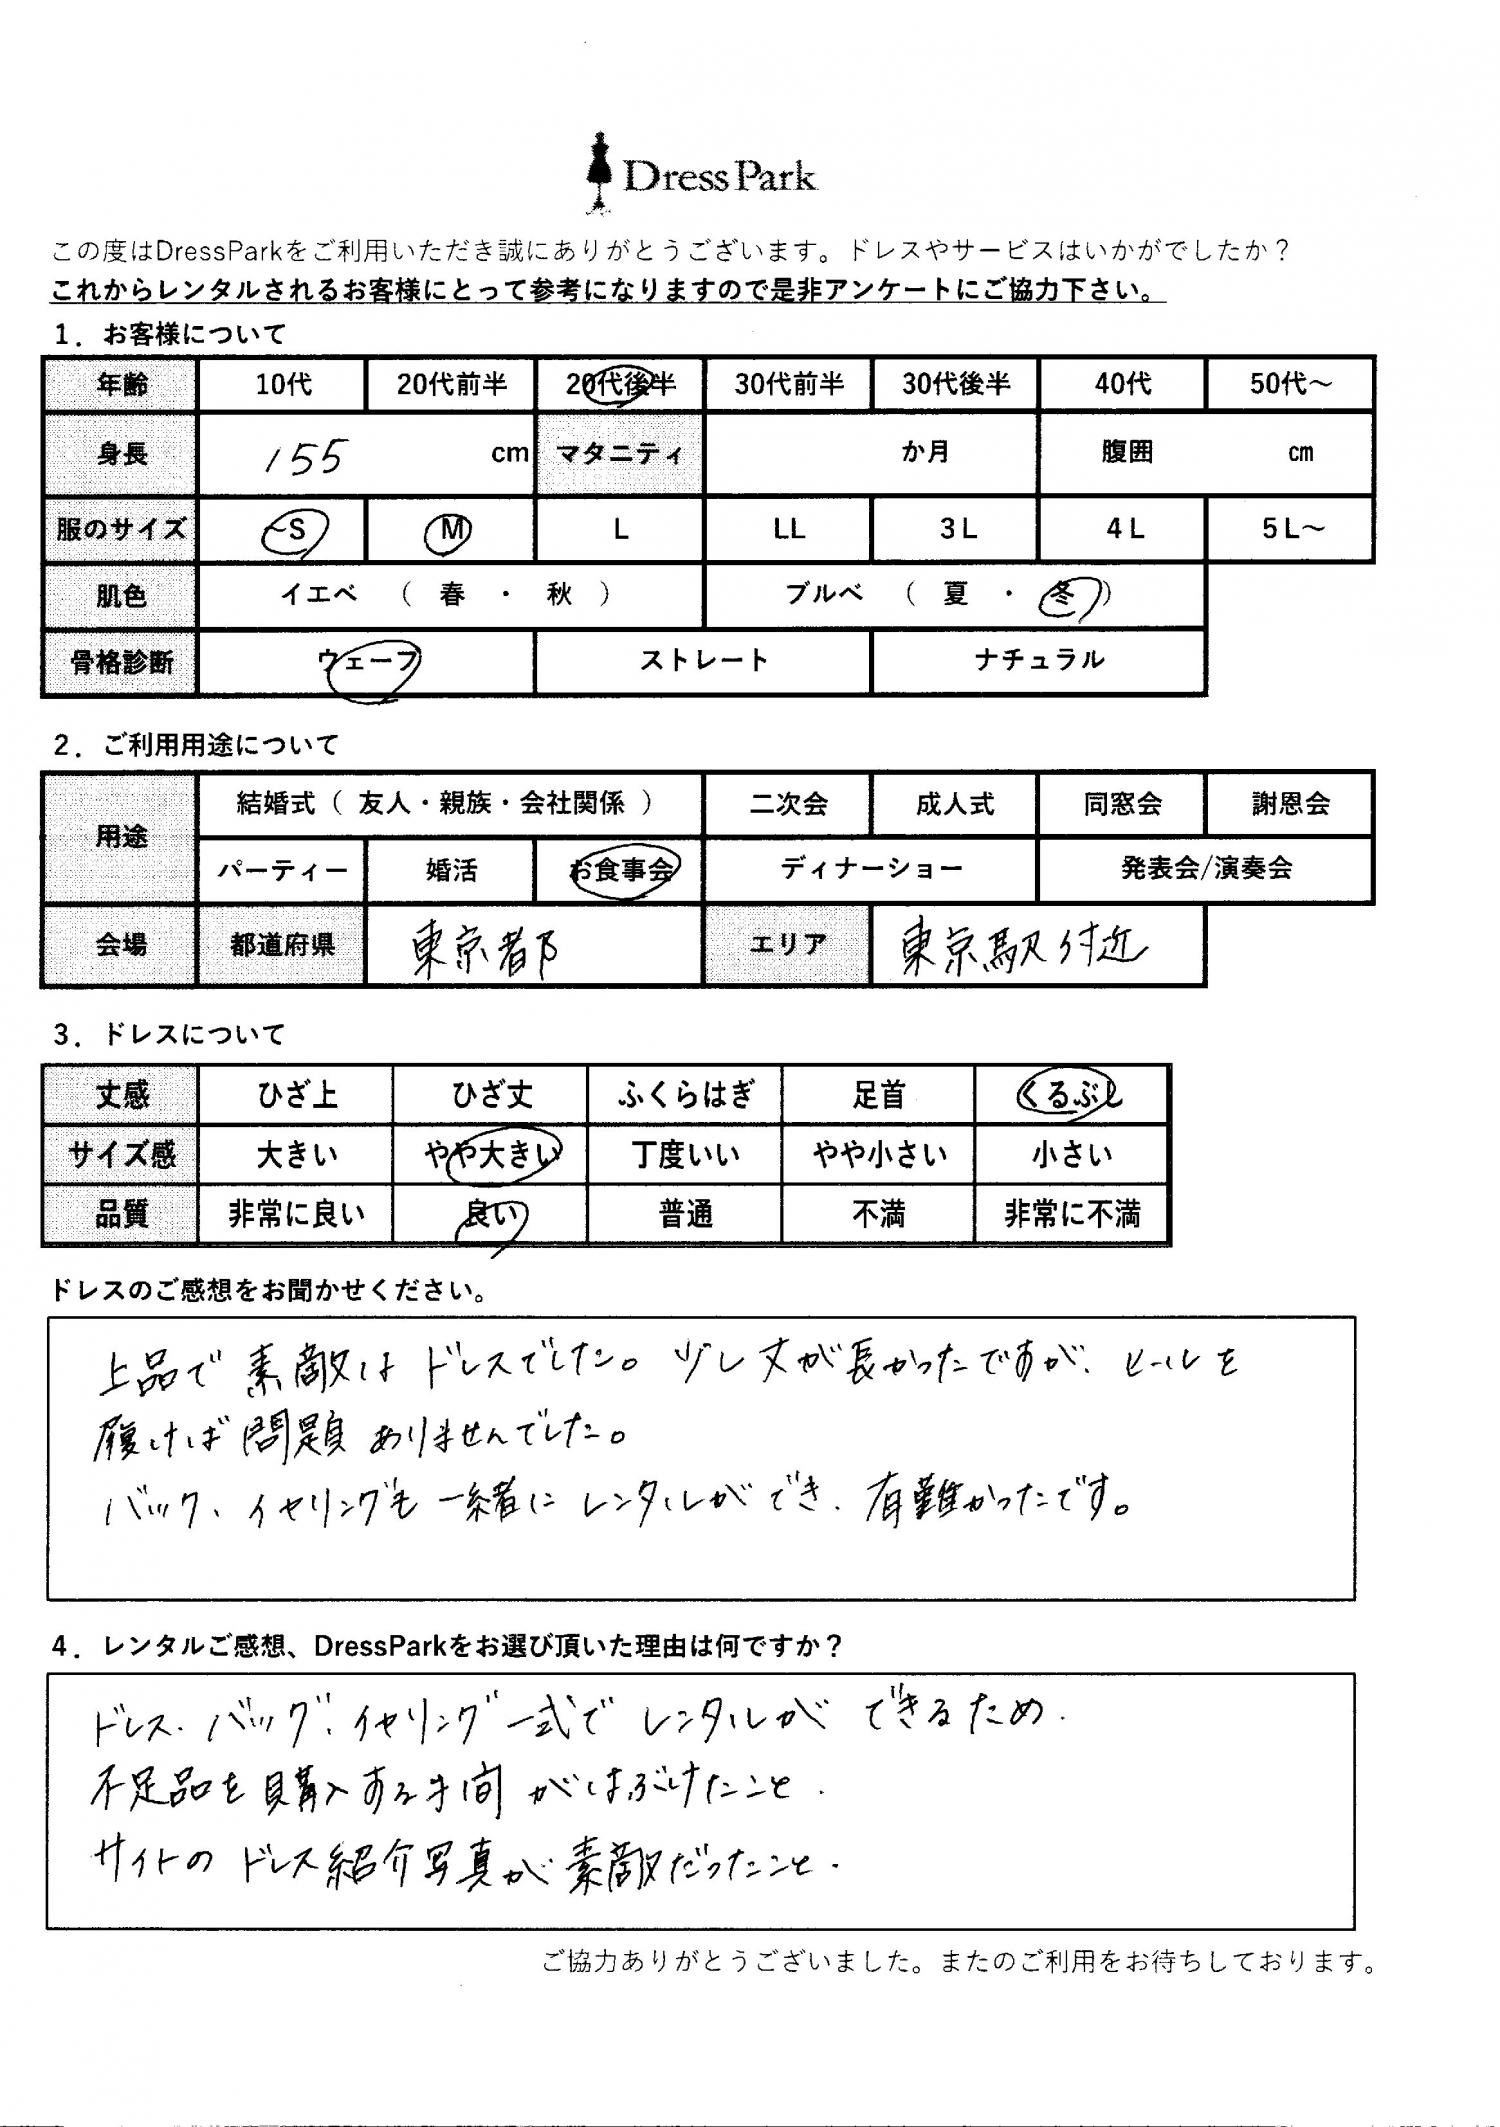 DressPark
この度はDressParkをご利用いただき誠にありがとうございます。ドレスやサービスはいかがでしたか？
これからレンタルされるお客様にとって参考になりますので是非アンケートにご協力下さい。
1．お客様について
年齢 10代 20代前半 20代後半 30代前半 30代後半 40代 50代～
身長 155 cm マタニティ か月 腹囲 cm
服のサイズ ~S M L LL 3L 4L 5L～
肌色 イエベ （ 春 ・ 秋 ） ブルベ （ 夏 ・ 冬 ）
骨格診断 ウェーブ ストレート ナチュラル
2．ご利用用途について
用途 結婚式（ 友人・親族・会社関係 ） 二次会 成人式 同窓会 謝恩会
パーティー 婚活 お食事会 ディナーショー 発表会/演奏会
会場 都道府県 東京都 エリア 東京駅付近
3．ドレスについて
丈感 ひざ上 ひざ丈 ふくらはぎ 足首 くるぶし
サイズ感 大きい やや大きい 丁度いい やや小さい 小さい
品質 非常に良い 良い 普通 不満 非常に不満
ドレスのご感想をお聞かせください。
上品で素敵なドレスでした。少し丈が長かったですが、ヒールを
履けば問題ありませんでした。
バック、イヤリングも一緒にレンタルができ、有難かったです。
4．レンタルご感想、DressParkをお選び頂いた理由は何ですか？
ドレス、バッグ、イヤリング一式でレンタルができるため、
不足品を購入する手間がはぶけたこと、
サイトのドレス紹介写真が素敵だったこと、
ご協力ありがとうございました。またのご利用をお待ちしております。